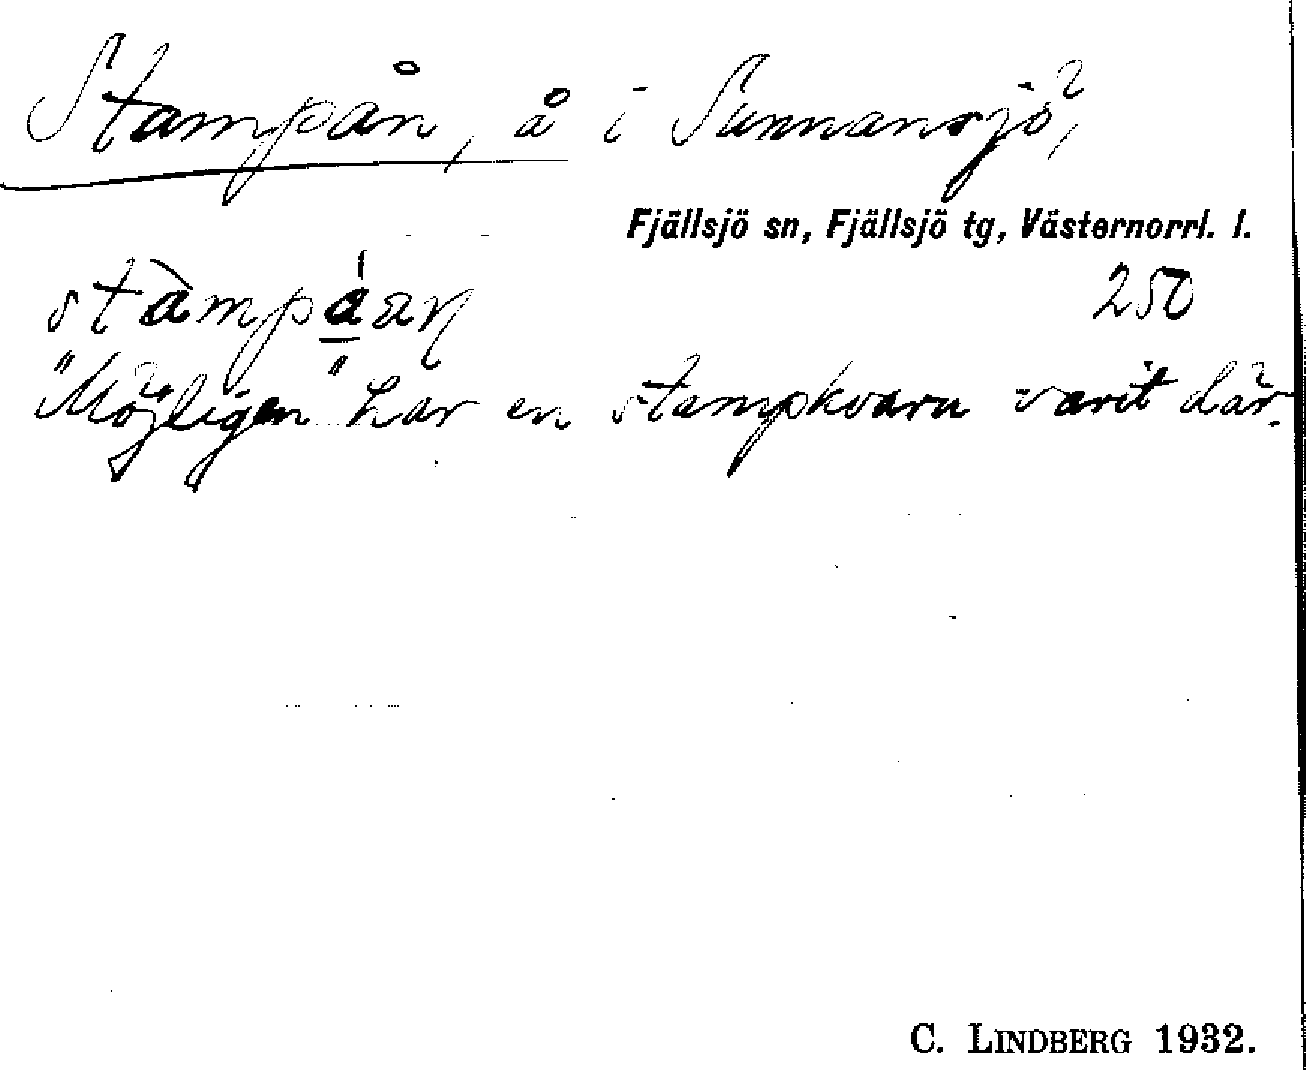 Stampån, å i Sunnansjö,
Fjällsjö sn, Fjällsjö tg, Västernorrl. l.
250
"Möjligen" har en stampkvarn varit där.
C. LINDBERG 1932.